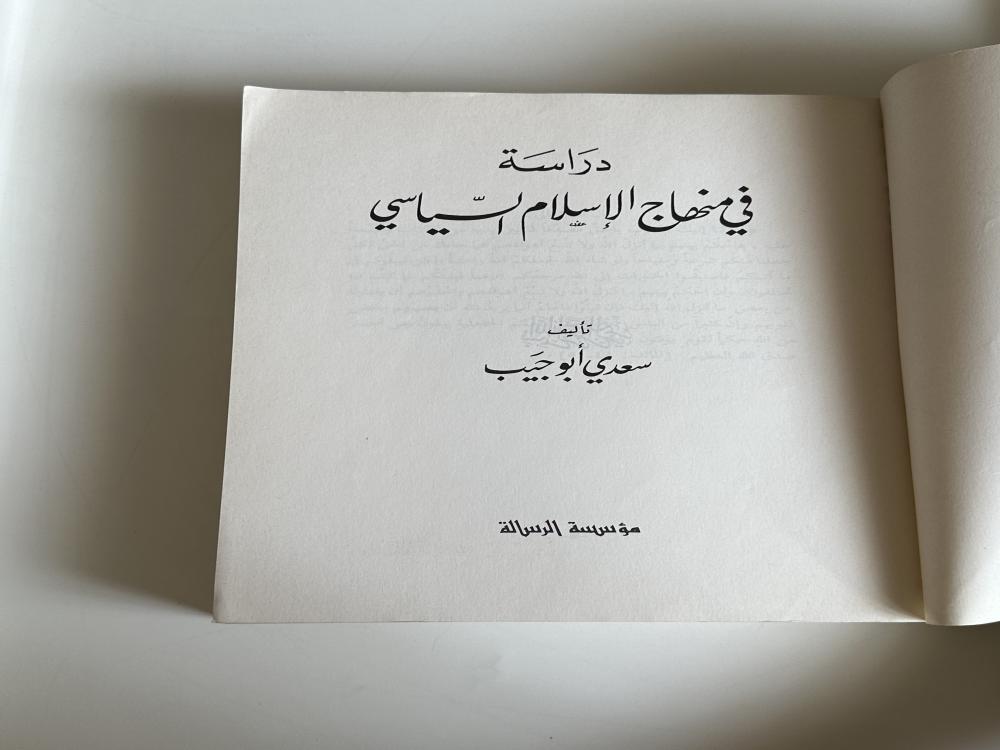 دَرَاسَة
في منهاج الإسلام السّياسي
تأليف
سعدي أبو جَيَب
مؤسسة الرسالة